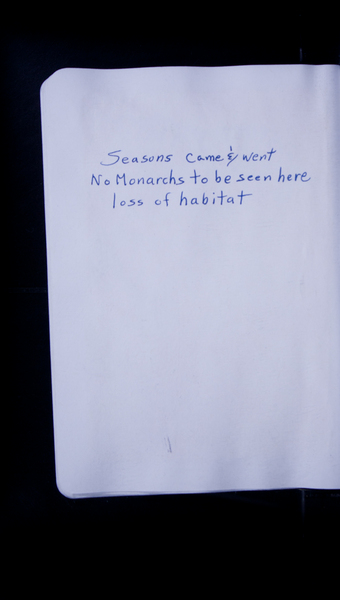 Seasons Came & went
No Monarchs to be seen here
loss of habitat